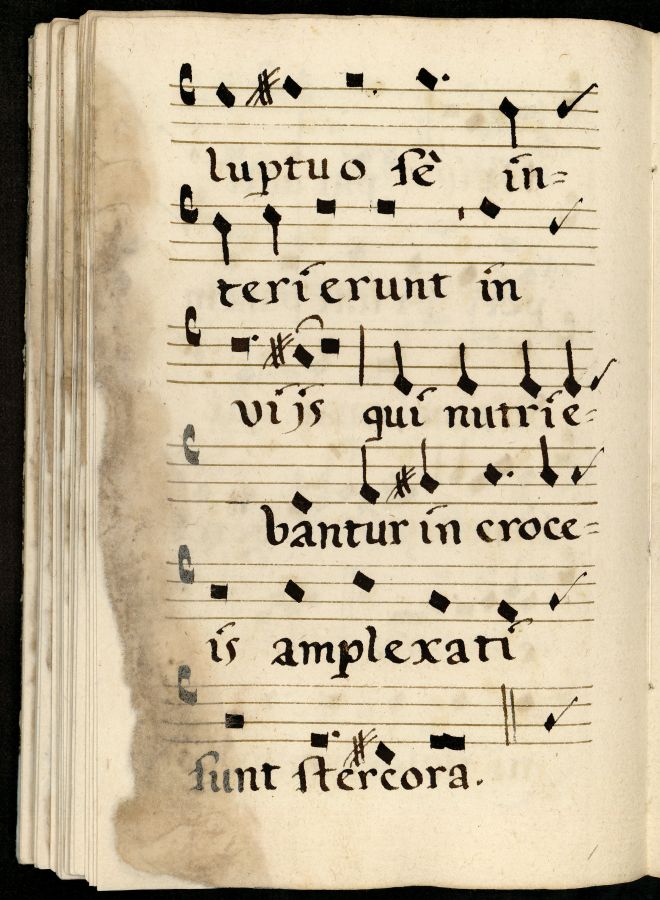 luptuo sè in=
terierunt in
vijs qui nutrie=
bantur in croce=
is amplexati
sunt stercora.